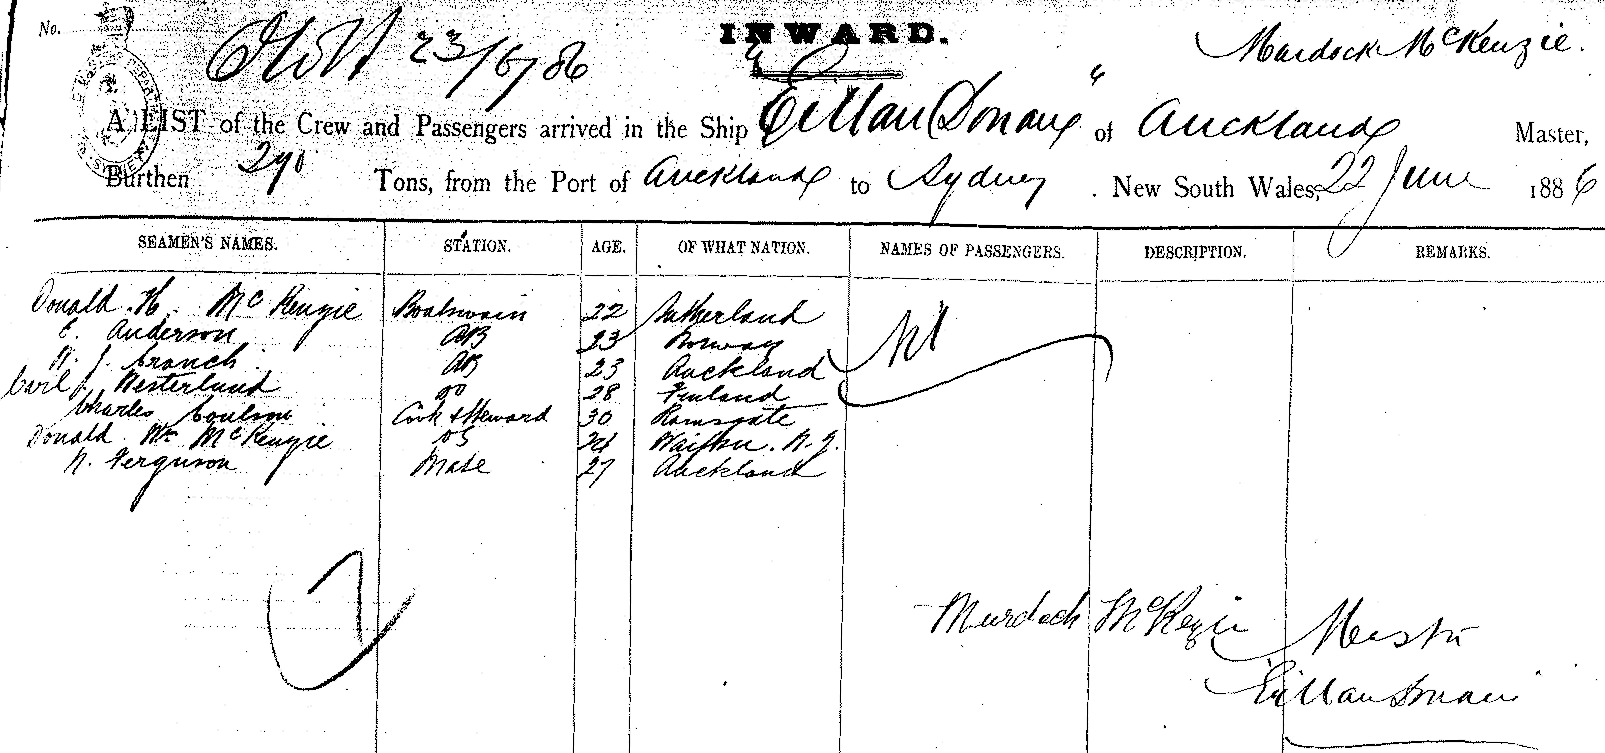 No.
23/6/86
INWARD.
Murdock McKenzie.
A LIST of the Crew and Passengers arrived in the Ship "Eillan Donan" of Auckland Master,
Burthen 290 Tons, from the Port of Auckland to Sydney . New South Wales, 22 June 1886
SEAMEN'S NAMES. STATION. AGE. OF WHAT NATION. NAMES OF PASSENGERS. DESCRIPTION. REMARKS.
Donald H. McKenzie Boatswain 22 Sutherland Nil
E. Anderson AB 23 Norway
J. Branch AB 23 Auckland
Carl J. Westerlund do 28 Finland
Charles Coulson Cook & Steward 30 Ramsgate
Donald Wm McKenzie OS 24 Waipu. N.Z.
N. Ferguson Mate 27 Auckland
7
Murdock McKezie Master
Eillan Donan